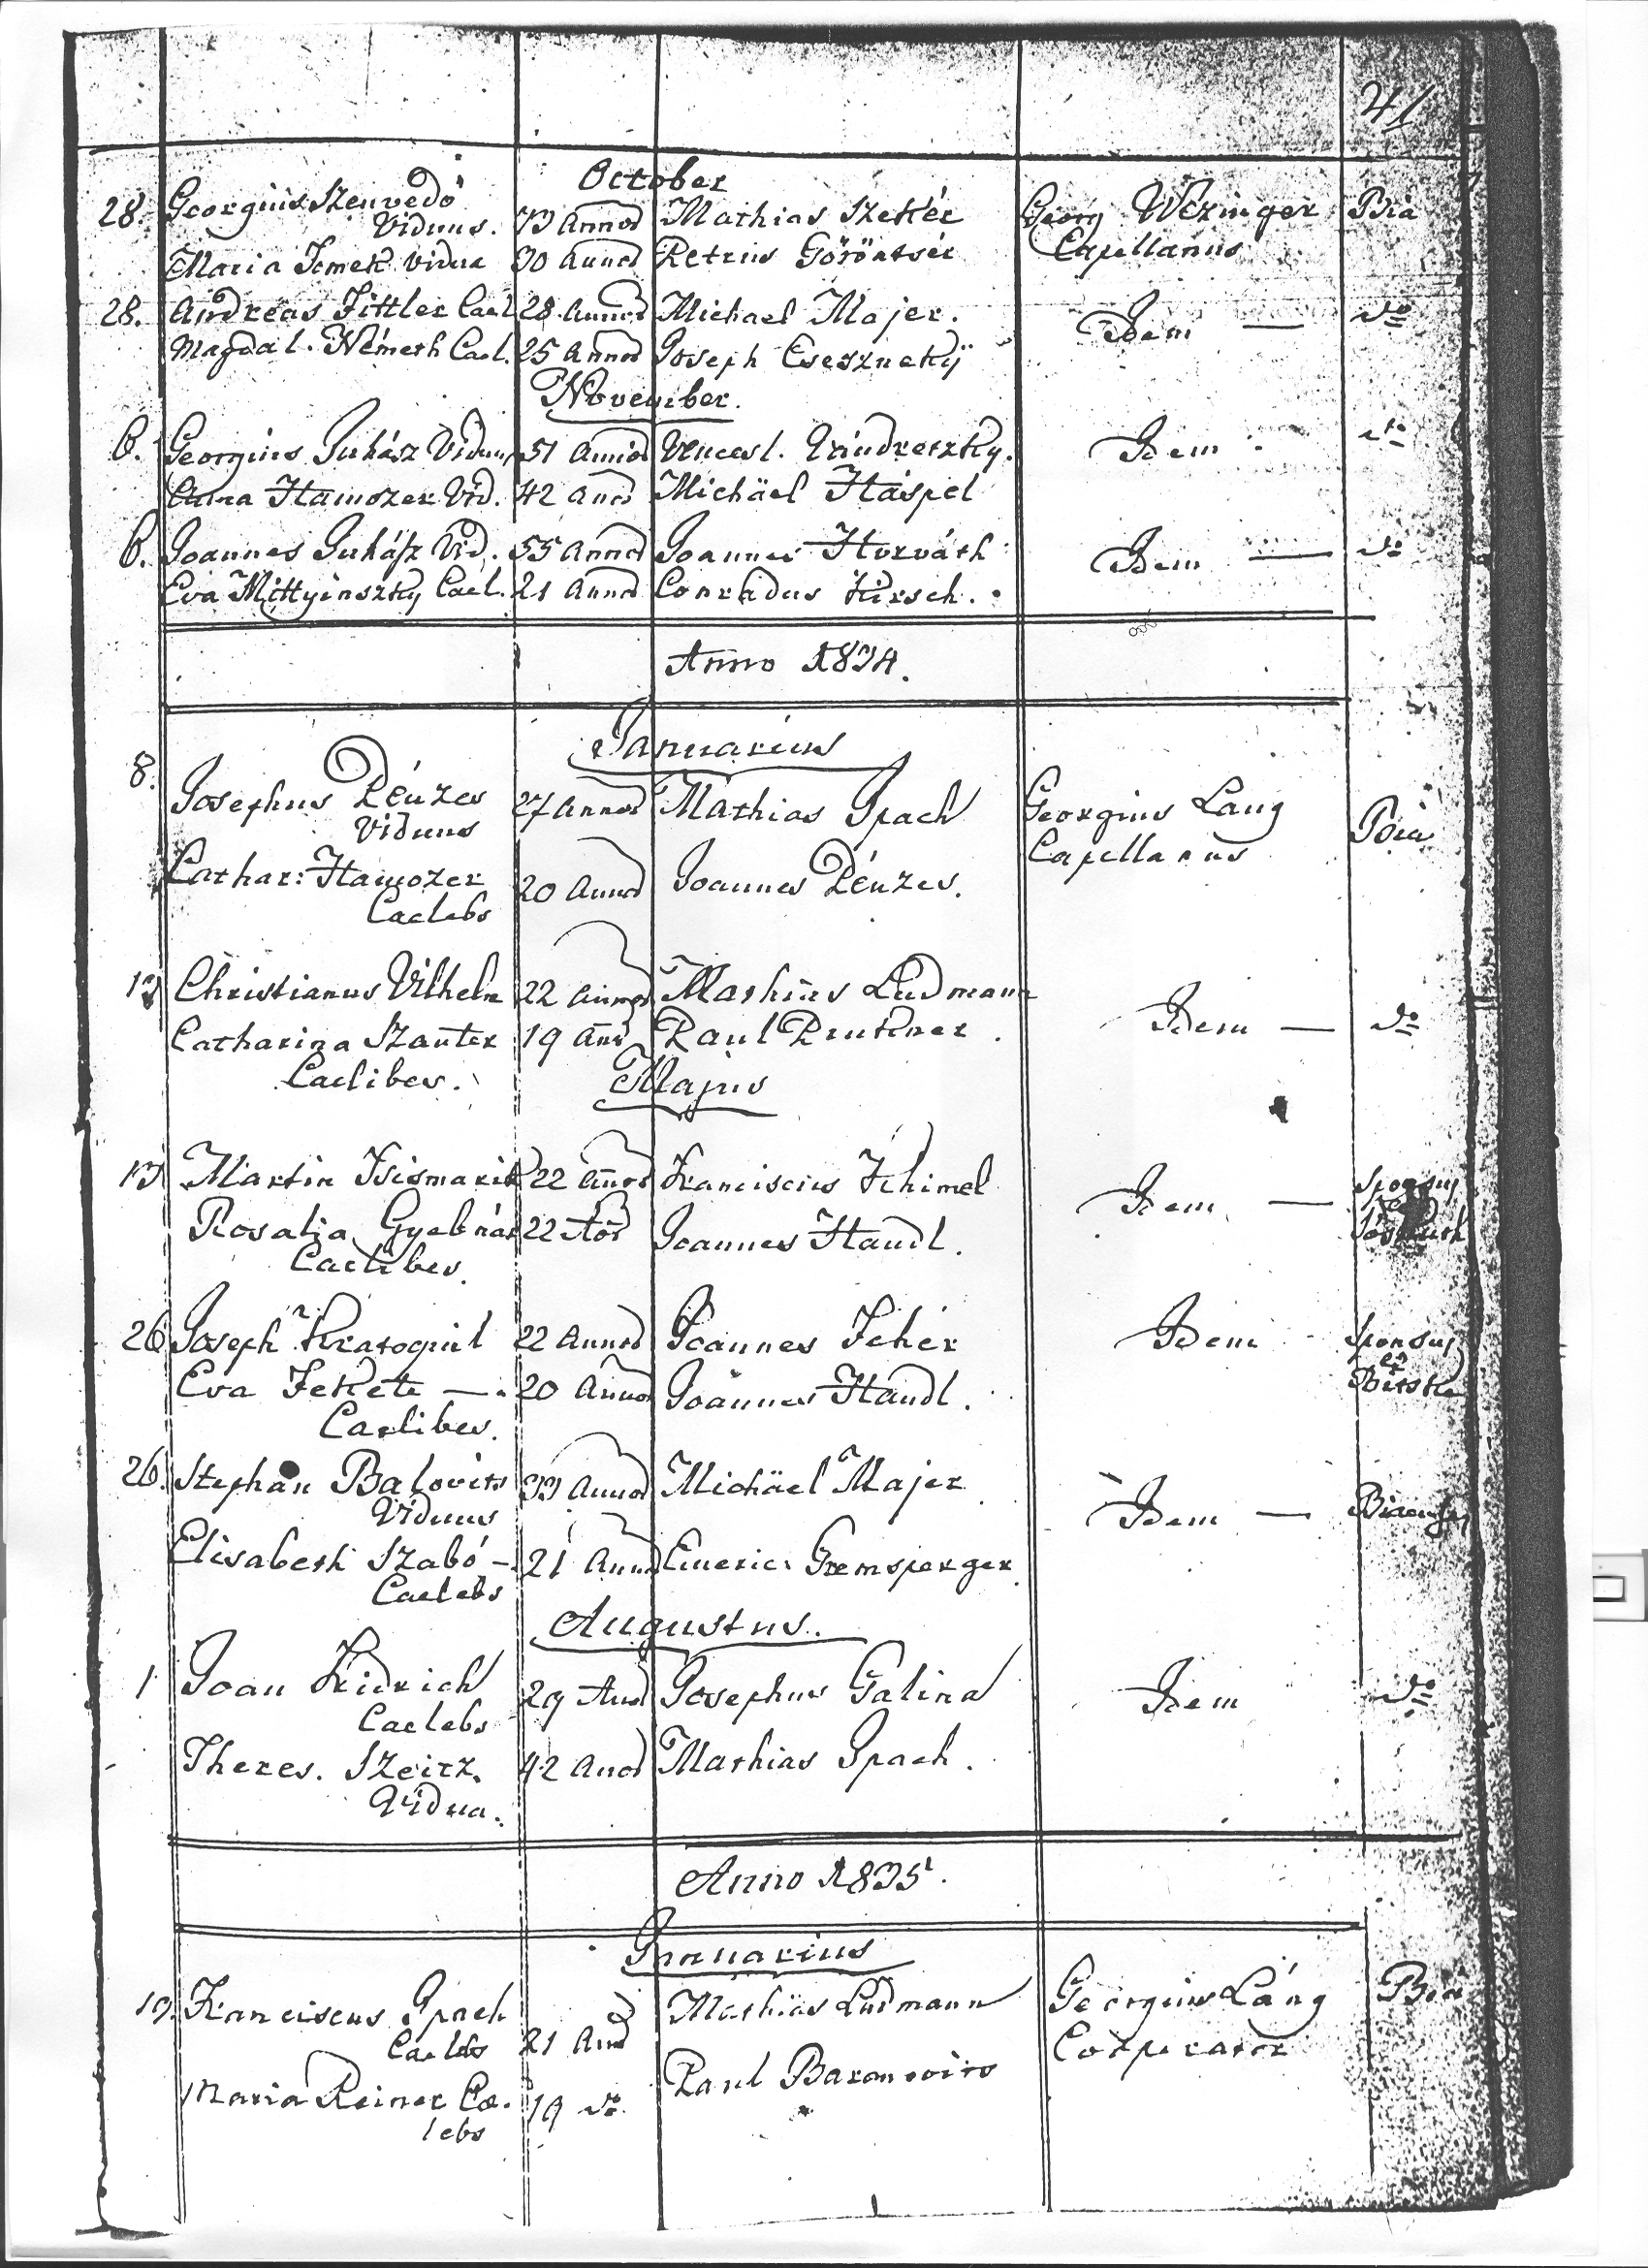 41
October
28. Georgius Szenvedő Viduus. 73 Annor Mathias Szekér Georg Wezinger Capellanus Bia
Maria Temek Vidua 30 Annor Petrus Göröntsér
28. Andreas Fittler Cael. 28 Annor Michael Majer. Idem — do
Magdal. Németh Cael. 25 Annor Joseph Eseszneky
November.
6. Georgius Juhász Viduus 51 Annor Vencesl. Idem do
Anna Hamozer Vid. 42 Anor Michäel Háspel
6. Joannes Juhász Vid. 55 Annor Joannes Horváth Idem — do
Eva Mittyinszky Cael. 21 Annor Conradus Hirsch.
Anno 1834.
Januarius
8. Josephus Pénzes Viduus 27 Annor Mathias Spach Georgius Lang Capellanus Bia
Cathar: Hamozer Caelebs 20 Annor Joannes Pénzes.
13 Christianus Vilhelm 22 Annor Mathias Ludmann Idem — do
Catharina Szauter 19 Anor Paul Prukner.
Caelibes.
Majus
13 Martin 22 Anor Franciscus Schimel Idem — Sponsus
Rosalia Gyebnár 22 Aor Joannes Handl.
Caelibes.
26 Joseph 22 Annor Joannes Fehér Idem Sponsus
Eva Fekete — 20 Annor Joannes Handl. ex Bitske
Caelibes.
26. Stephan Balovits Viduus 33 Annor Michäel Majer Idem —
Elisabeth Szabó — Caelebs 21 Annor Emeric: Gremsperger
Augustus.
1 Joan Fridrich Caelebs 29 Anor Josephus Galina Idem do
Theres. Szeitz. Vidua. 42 Anor Mathias Spach.
Anno 1835.
Januarius
19. Franciscus Spach Caelebs 21 Anor Mathias Ludmann Georgius Láng Cooperator Bia
Maria Reiner Cae- lebs 19 do Paul Baronovits